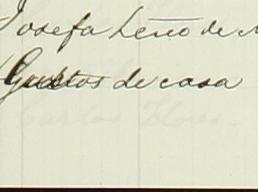 Josefa Leño de
Gastos de casa
Carlos Flores